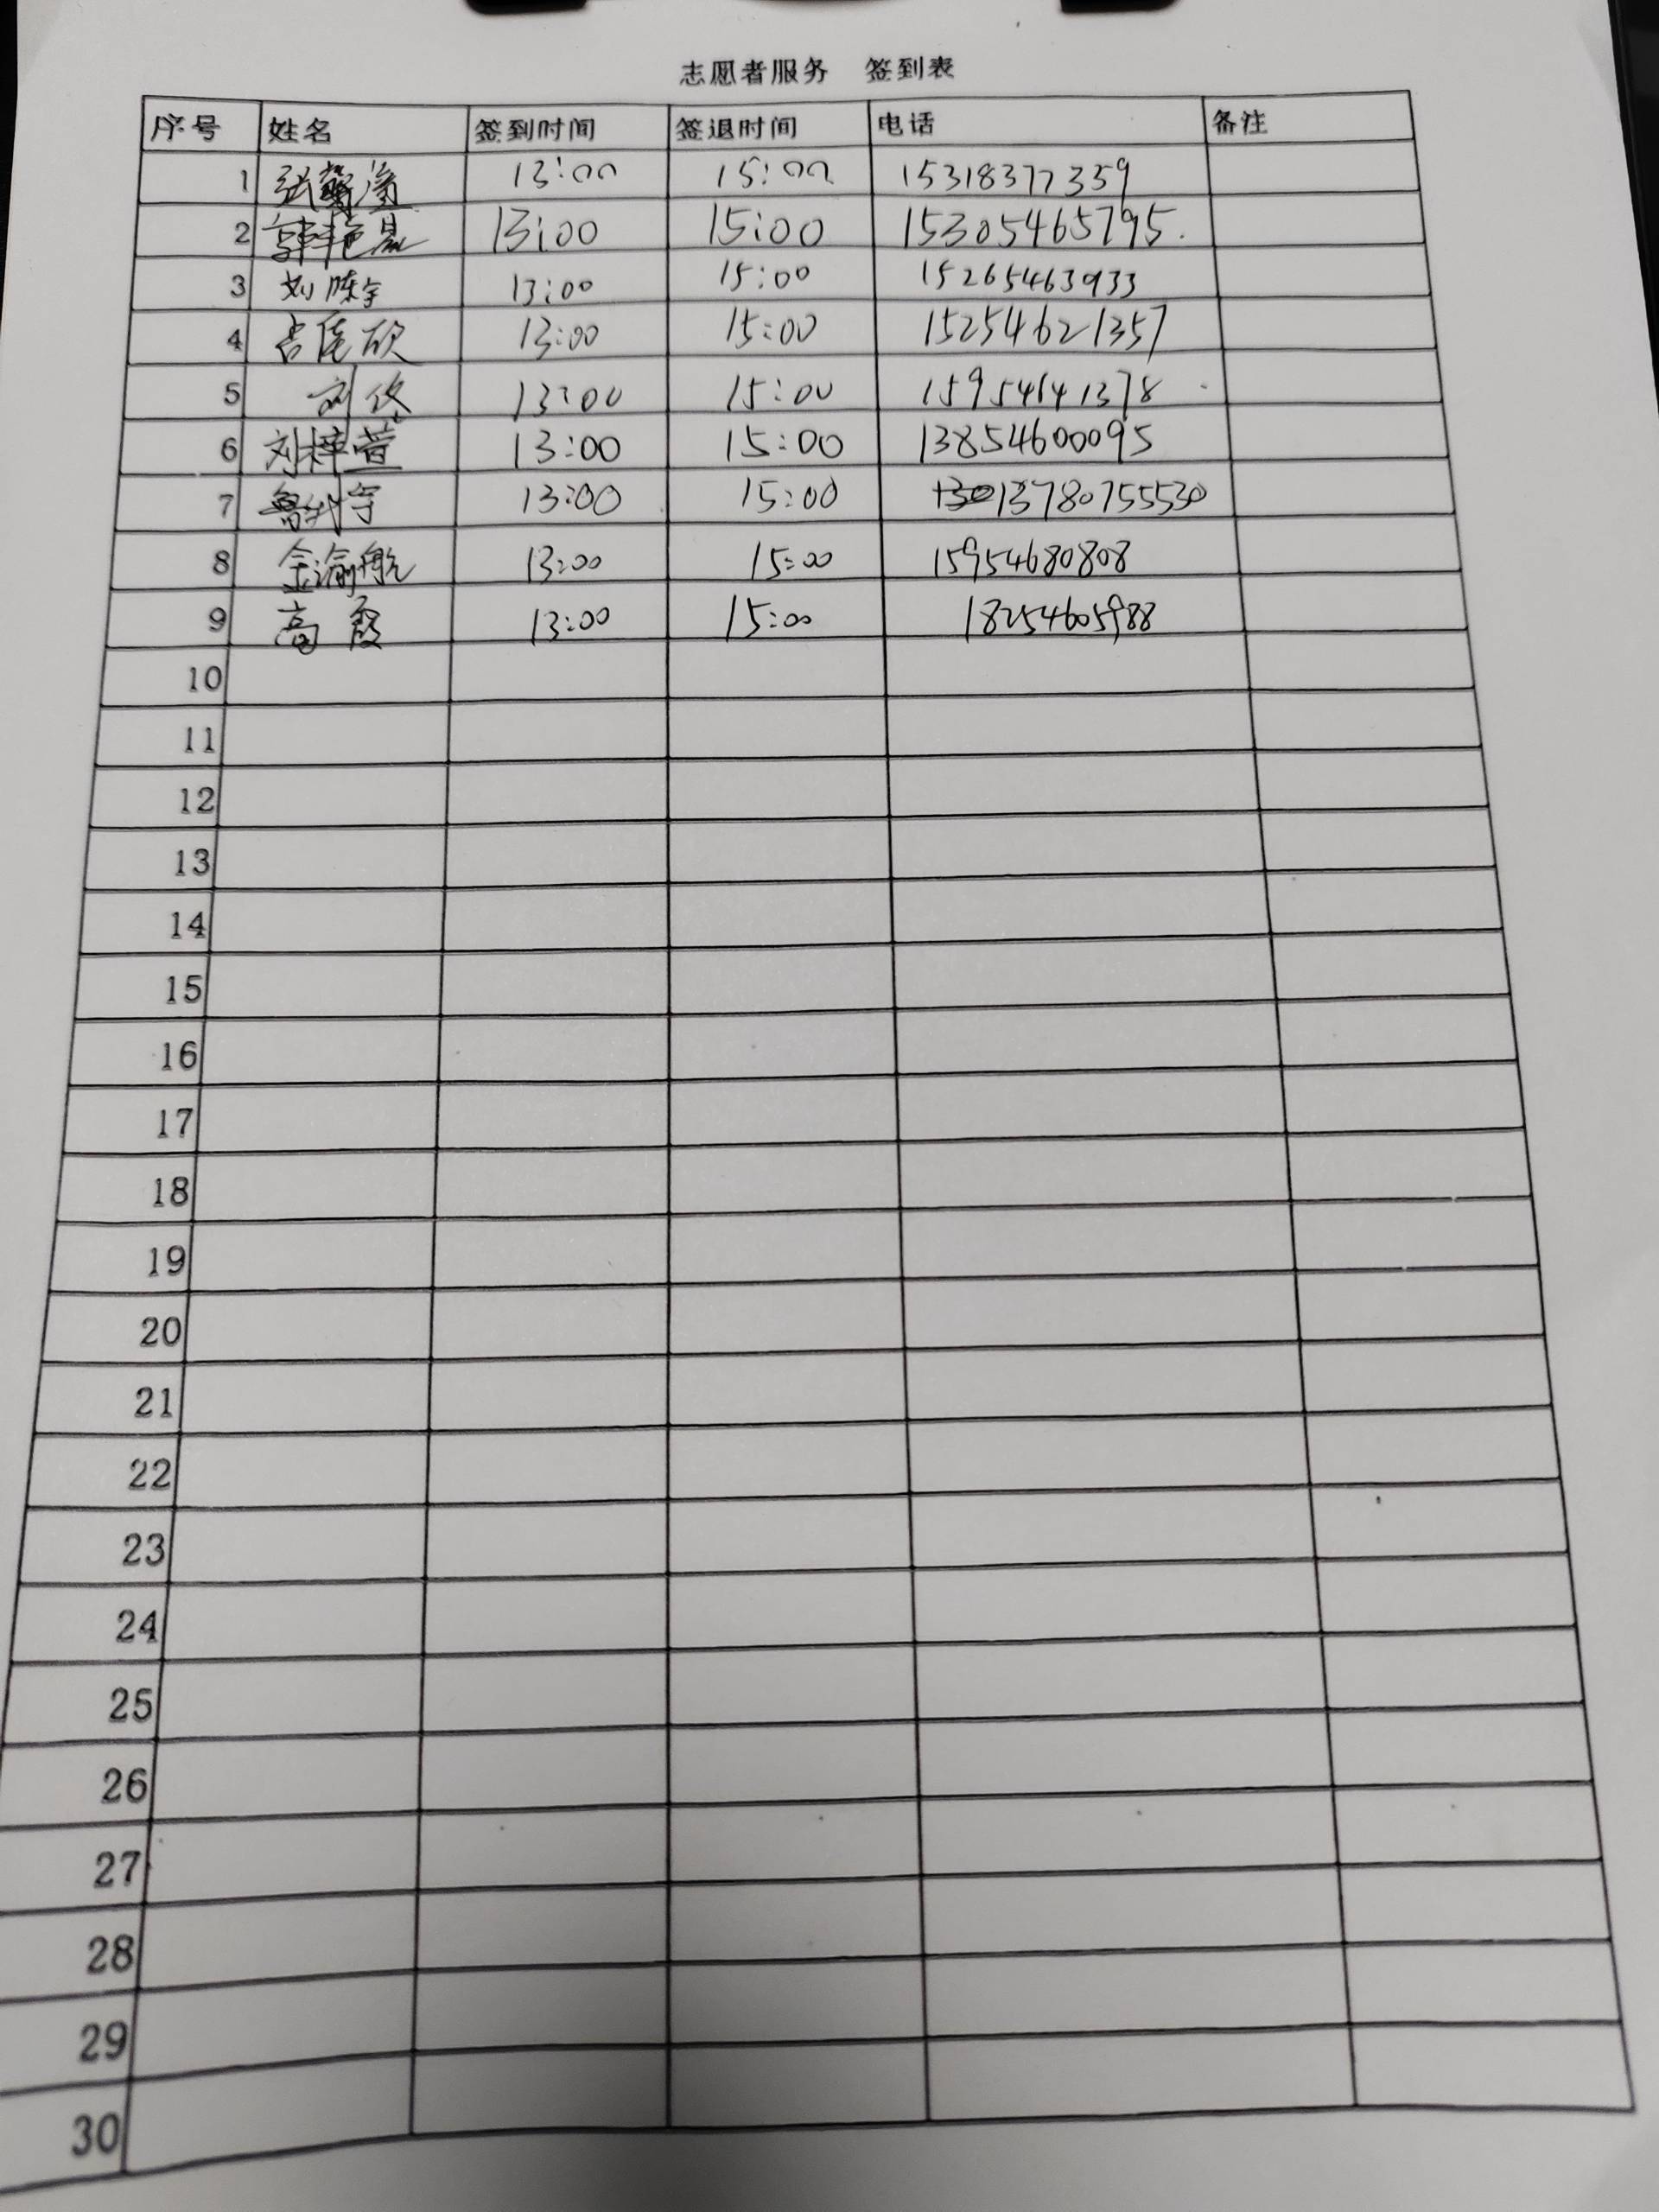 志愿者服务 签到表
序号 姓名 签到时间 签退时间 电话 备注
1 张馨 13:00 15:00 15318377359
2 郭艳晨 13:00 15:00 15305465795.
3 刘陈宇 13:00 15:00 15265463933
4 13:00 15:00 15254621357
5 刘 13:00 15:00 15954641378
6 刘梓萱 13:00 15:00 13854600095
7 鲁 宇 13:00 15:00 13780755530
8 金渝航 13:00 15:00 15954680808
9 高霞 13:00 15:00 18254605988
10
11
12
13
14
15
16
17
18
19
20
21
22
23
24
25
26
27
28
29
30